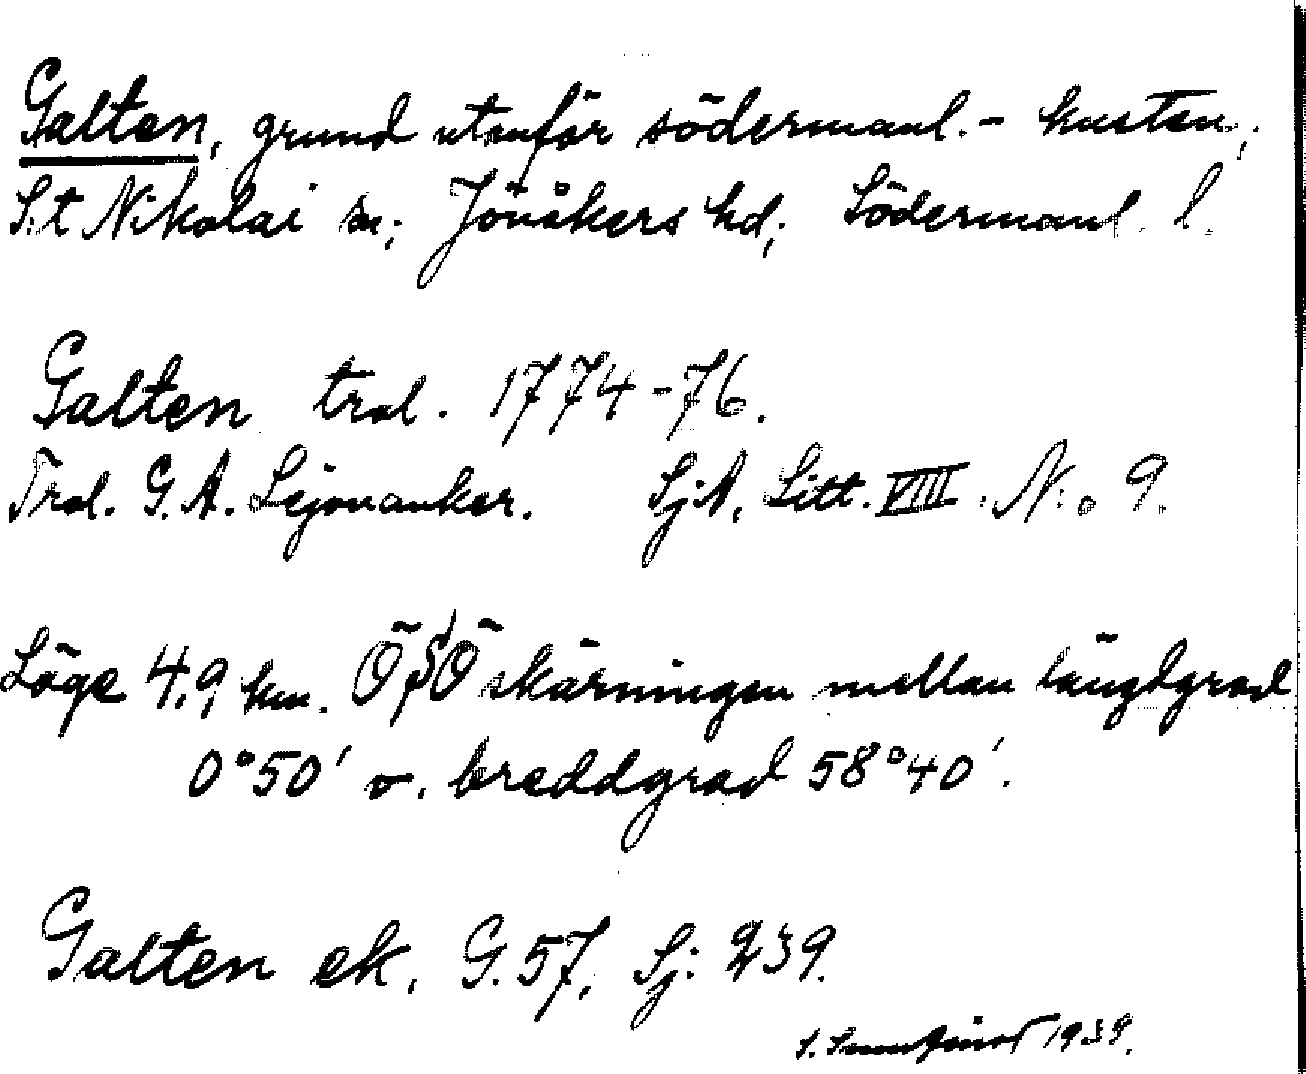 Galten, grund utanför södermanl.- kusten;
S:t Nikolai sn; Jönåkers hd; Södermanl. l.
Galten trol. 1774-76.
Trol. G. A. Lejonanker. SjA, Litt. VIII. N:o 9.
Läge 4,9 km. ÖSÖ skärningen mellan längdgrad
0°50' o. breddgrad 58°40'.
Galten ek. G. 57, Sj: 239.
S. 1939.